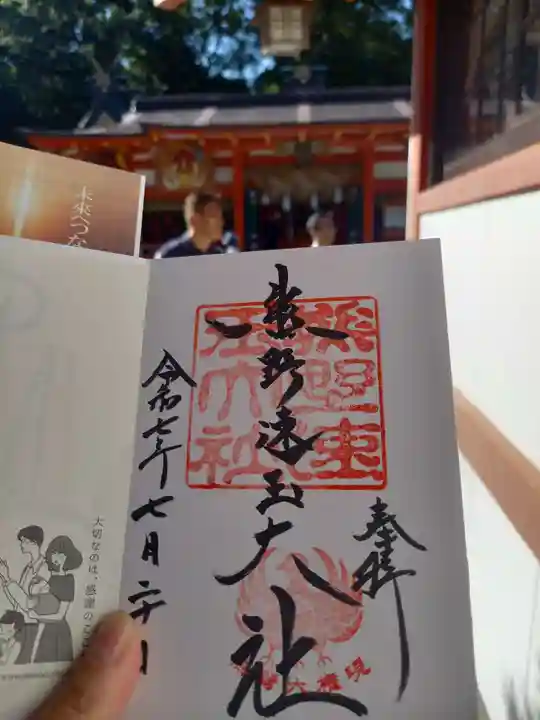 奉拝
熊野速玉大社
令和七年七月二十日
熊野速玉大社
六権現
未来へつな
大切なのは、感謝のこ